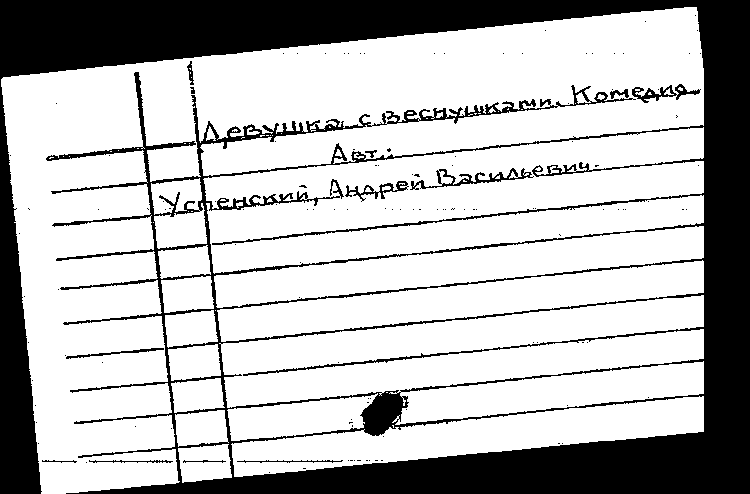 Девушка с веснушками. Комедия.
Авт.:
Успенский, Андрей Васильевич.